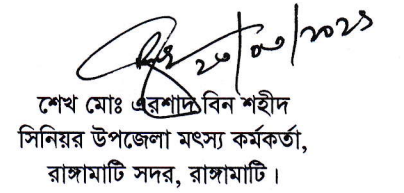 ২৩/০৩/২০২১
শেখ মোঃ এরশাদ বিন শহীদ
সিনিয়র উপজেলা মৎস্য কর্মকর্তা,
রাঙ্গামাটি সদর, রাঙ্গামাটি।